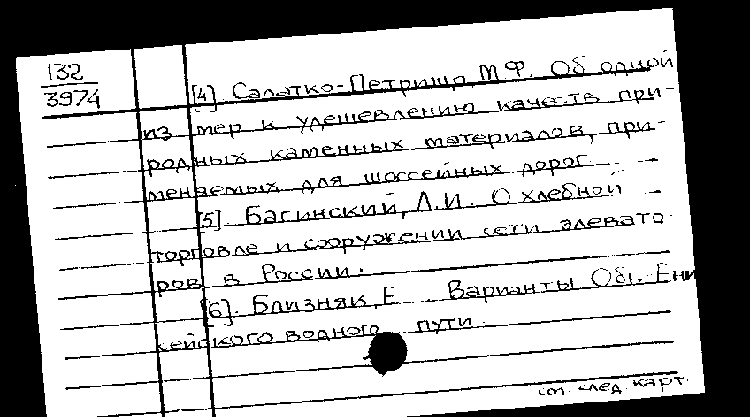 132
3974
[4]. Салатко-Петрище, М.Ф. Об одной
из мер к удешевлению качеств при-
родных каменных материалов, при-
меняемых для шоссейных дорог. –
[5]. Багинский, Л.И. О хлебной –
торговле и сооружении сети элевато-
ров в России.
[6]. Близняк, Е. Варианты Об. Ени
сейского водного пути.
см. след. карт.